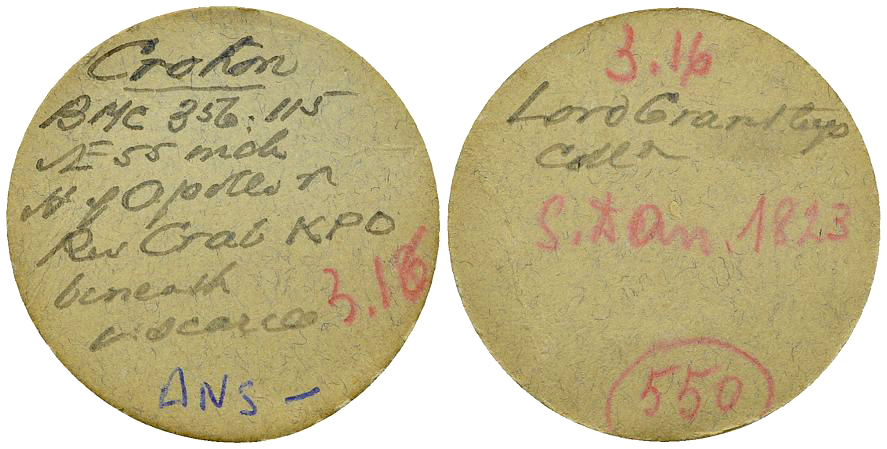 Croton
BMC 356. 115
Æ 55 inch
Hd of Apollo r
Rev Crab KPO
beneath
v. scarce
3.16
ANS –
3.16
Lord Grantleys
Colln
S. It An. 1823
550